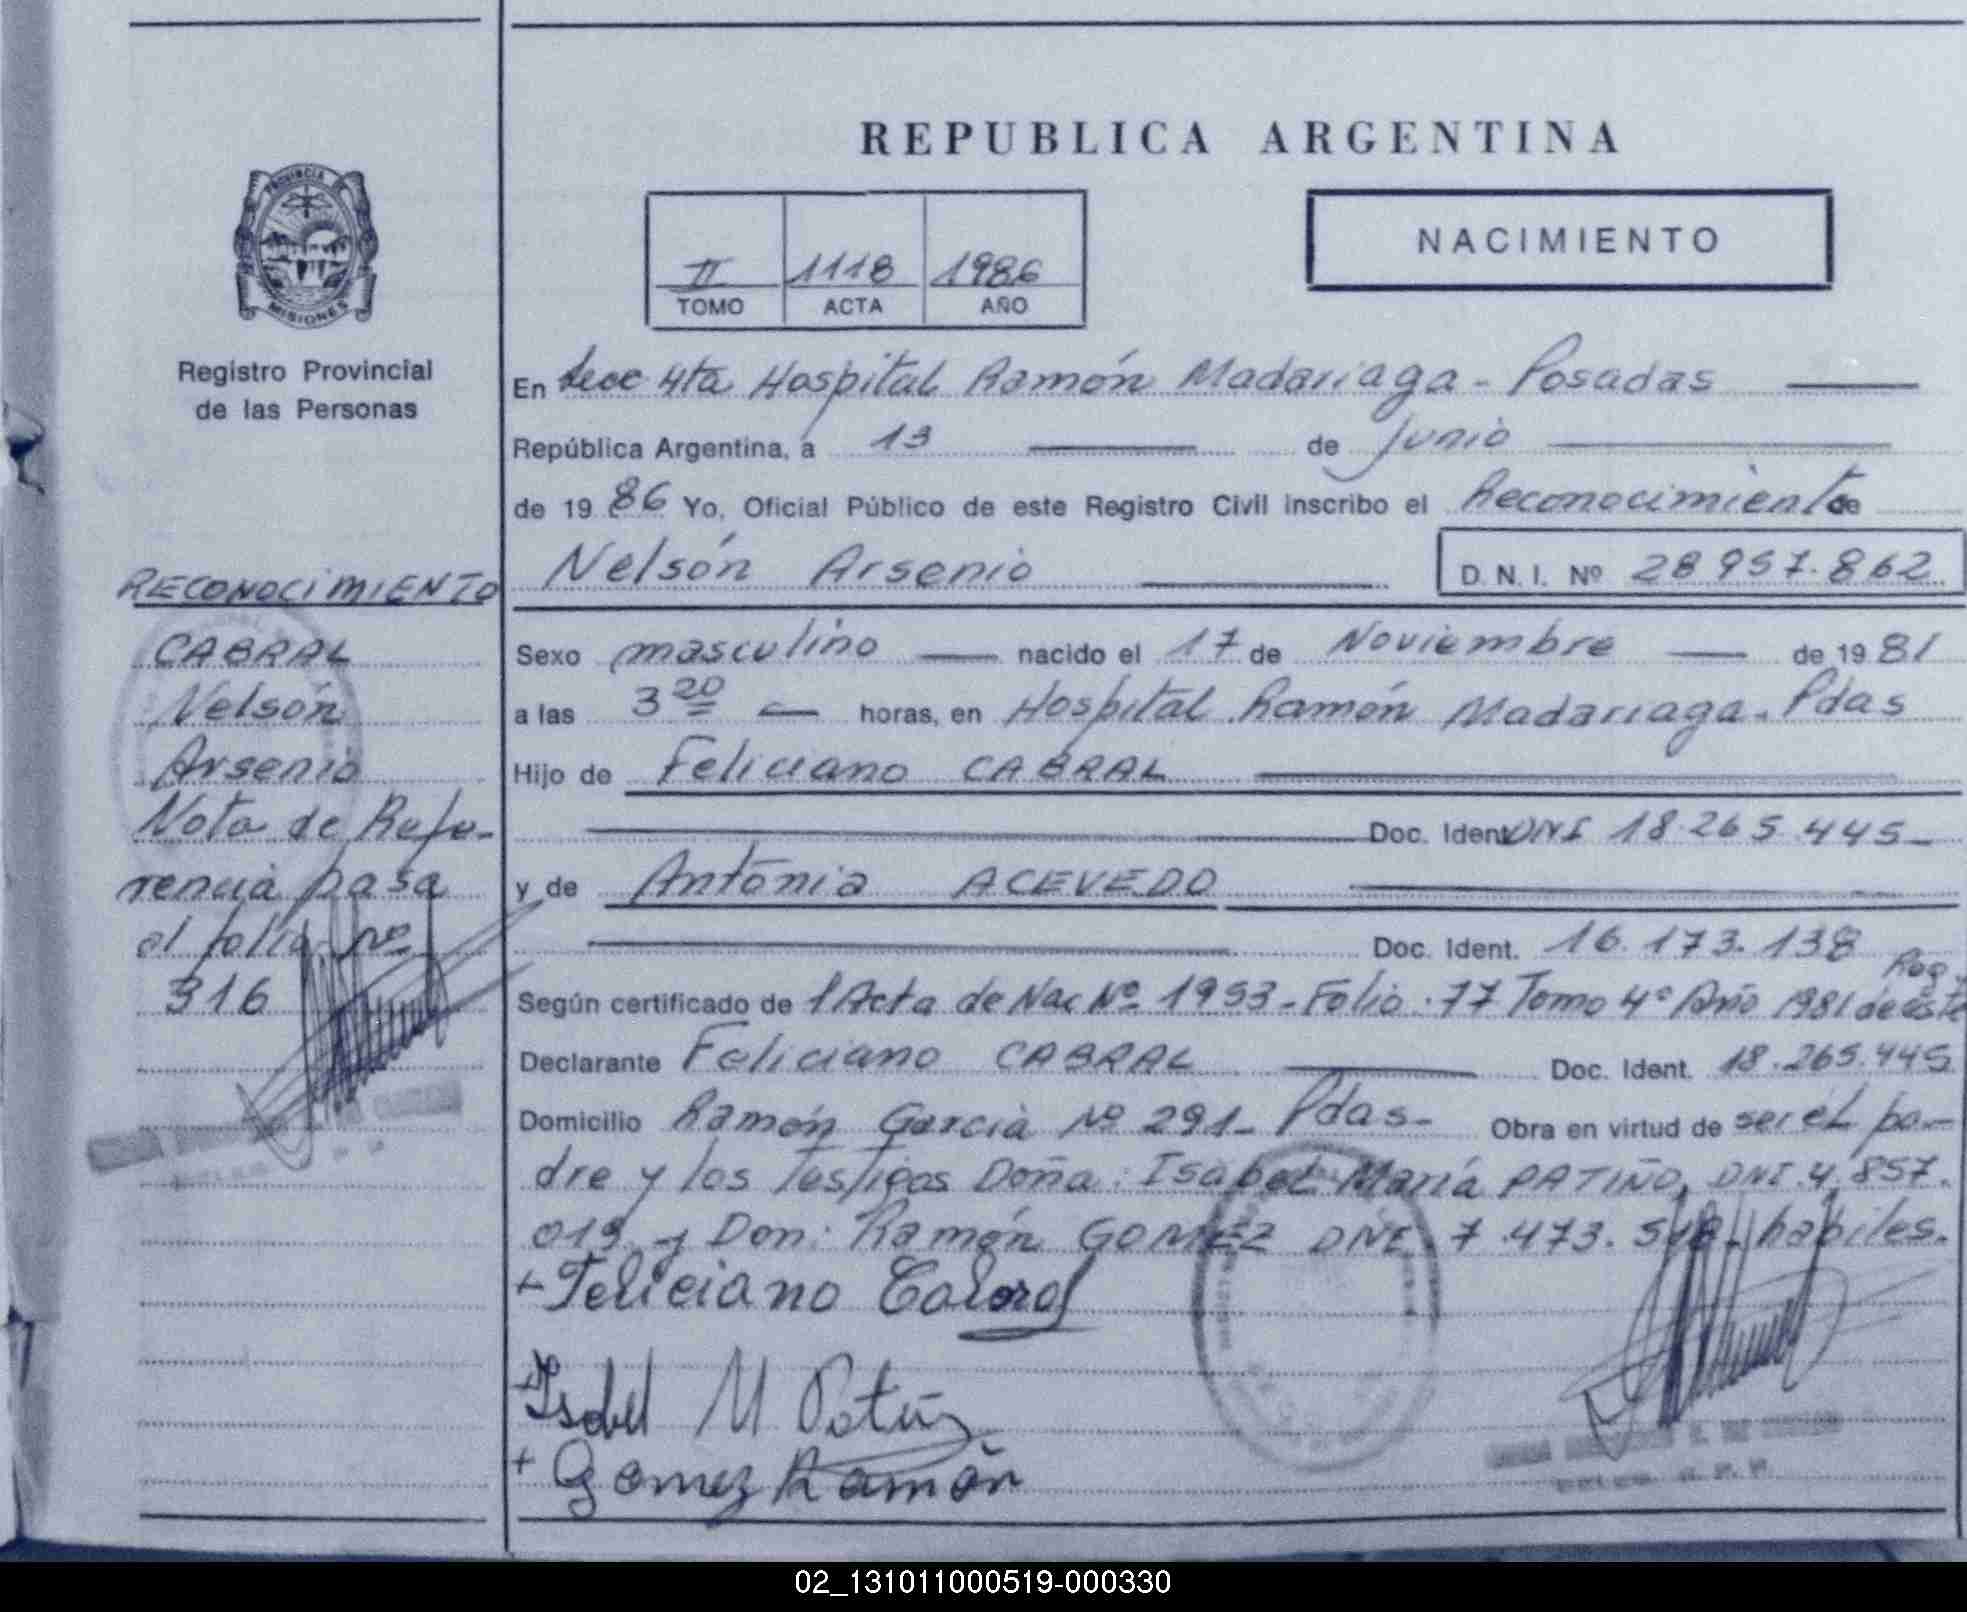 REPUBLICA ARGENTINA
PROVINCIA DE
MISIONES
Registro Provincial
de las Personas
II 1118 1986
TOMO ACTA AÑO
NACIMIENTO
En Secc 4ta Hospital Ramón Madariaga - Posadas
República Argentina, a 13 de Junio
de 1986 Yo, Oficial Público de este Registro Civil inscribo el Reconocimiento de
Nelsón Arsenio D. N. I. Nº 28 957.862
RECONOCIMIENTO
CABRAL
Nelsón
Arsenio
Nota de Refe-
rencia pasa
al folio nº
316
Sexo masculino nacido el 17 de Noviembre de 1981
a las 3 20 horas, en Hospital Ramón Madariaga - Pdas
Hijo de Feliciano CABRAL
Doc. Ident. DNI 18.265.445-
y de Antonia ACEVEDO
Doc. Ident. 16.173.138
Según certificado de l Acta de Nac Nº 1993 - Folio 77 Tomo 4º Año 1981 de este Reg.
Declarante Feliciano CABRAL Doc. Ident. 18.265.445
Domicilio Ramón García Nº 291- Pdas- Obra en virtud de ser el pa-
dre y los Testigos Doña: Isabel María PATIÑO, DNI. 4.857.
019 y Don: Ramón GOMEZ DNI 7.473. hábiles.
+ Feliciano Cabral
+ Isabel M Patiño
+ Gomez Ramón
02_131011000519-000330